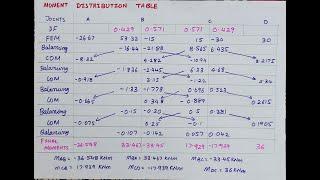 MOMENT DISTRIBUTION TABLE
JOINTS A B C D
DF 0.429 0.571 0.571 0.429
FEM -26.67 53.33 -15 15 -30 30
Balancing -16.44 -21.88 8.565 6.435
COM -8.22 4.282 -10.94 3.2175
Balancing -1.836 -2.445 6.25 4.69
COM
Balancing -1.778 0.696 0.523
COM -0.665 0.348 -0.889 0.2615
Balancing
COM -0.075 -0.1 0.1905
Balancing -0.107 -0.142 0.057 0.042
FINAL MOMENTS -36.548 33.467 -33.45 17.939 -17.939 36
MAB = -36.548 KNm MBA = 33.467 KNm MBC = -33.45 KNm
MCB = 17.939 KNm MCD = -17.939 KNm MDC = 36 KNm